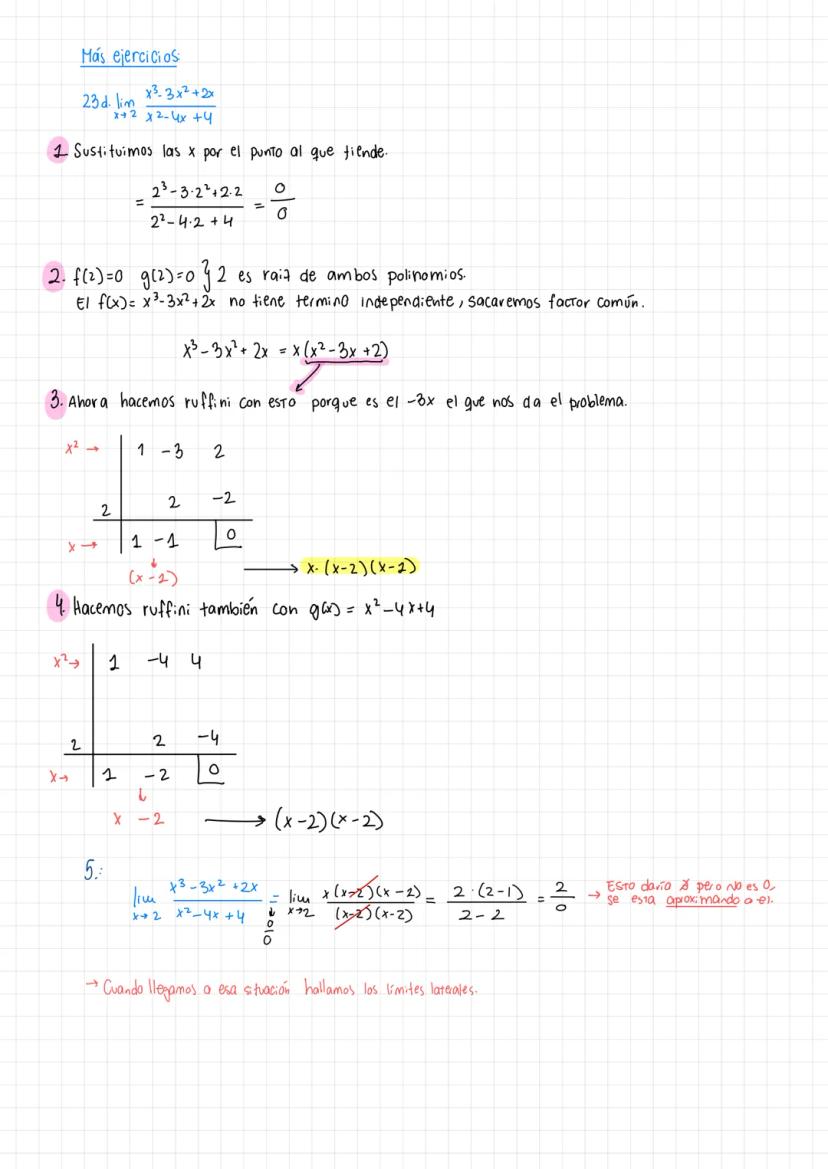 Más ejercicios:
23d. lim x→2 (x³-3x²+2x)/(x²-4x+4)
1 Sustituimos las x por el punto al que tiende.
= (2³-3·2²+2·2)/(2²-4·2+4) = 0/0
2. f(2)=0 g(2)=0 } 2 es raiz de ambos polinomios.
El f(x)= x³-3x²+2x no tiene termino independiente, sacaremos factor común.
x³-3x²+2x = x(x²-3x+2)
3. Ahora hacemos ruffini con esto porque es el -3x el que nos da el problema.
x² → 1 -3 2
2 2 -2
x → 1 -1 0
(x-2) → x·(x-2)(x-2)
4. Hacemos ruffini también con g(x) = x²-4x+4
x² → 1 -4 4
2 2 -4
x → 1 -2 0
x -2 → (x-2)(x-2)
5.:
lim x→2 (x³-3x²+2x)/(x²-4x+4) = lim x→2 x(x-2)(x-2)/(x-2)(x-2) = 2·(2-1)/(2-2) = 2/0 → Esto daría pero no es 0,
0/0 se esta aproximando a el.
→ Cuando llegamos a esa situación hallamos los límites laterales.